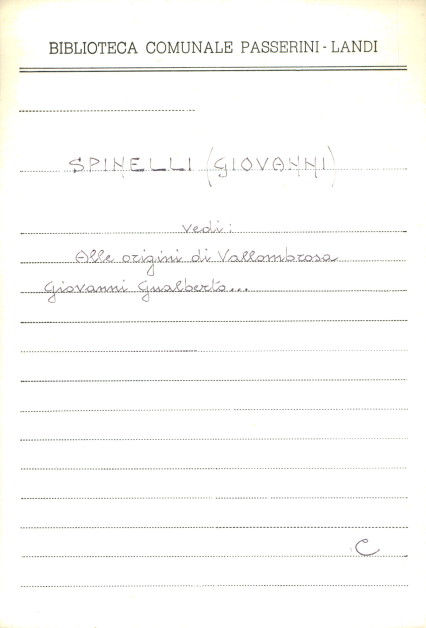 BIBLIOTECA COMUNALE PASSERINI - LANDI
SPINELLI (GIOVANNI)
vedi:
Alle origini di Vallombrosa
Giovanni Gualberto...
C